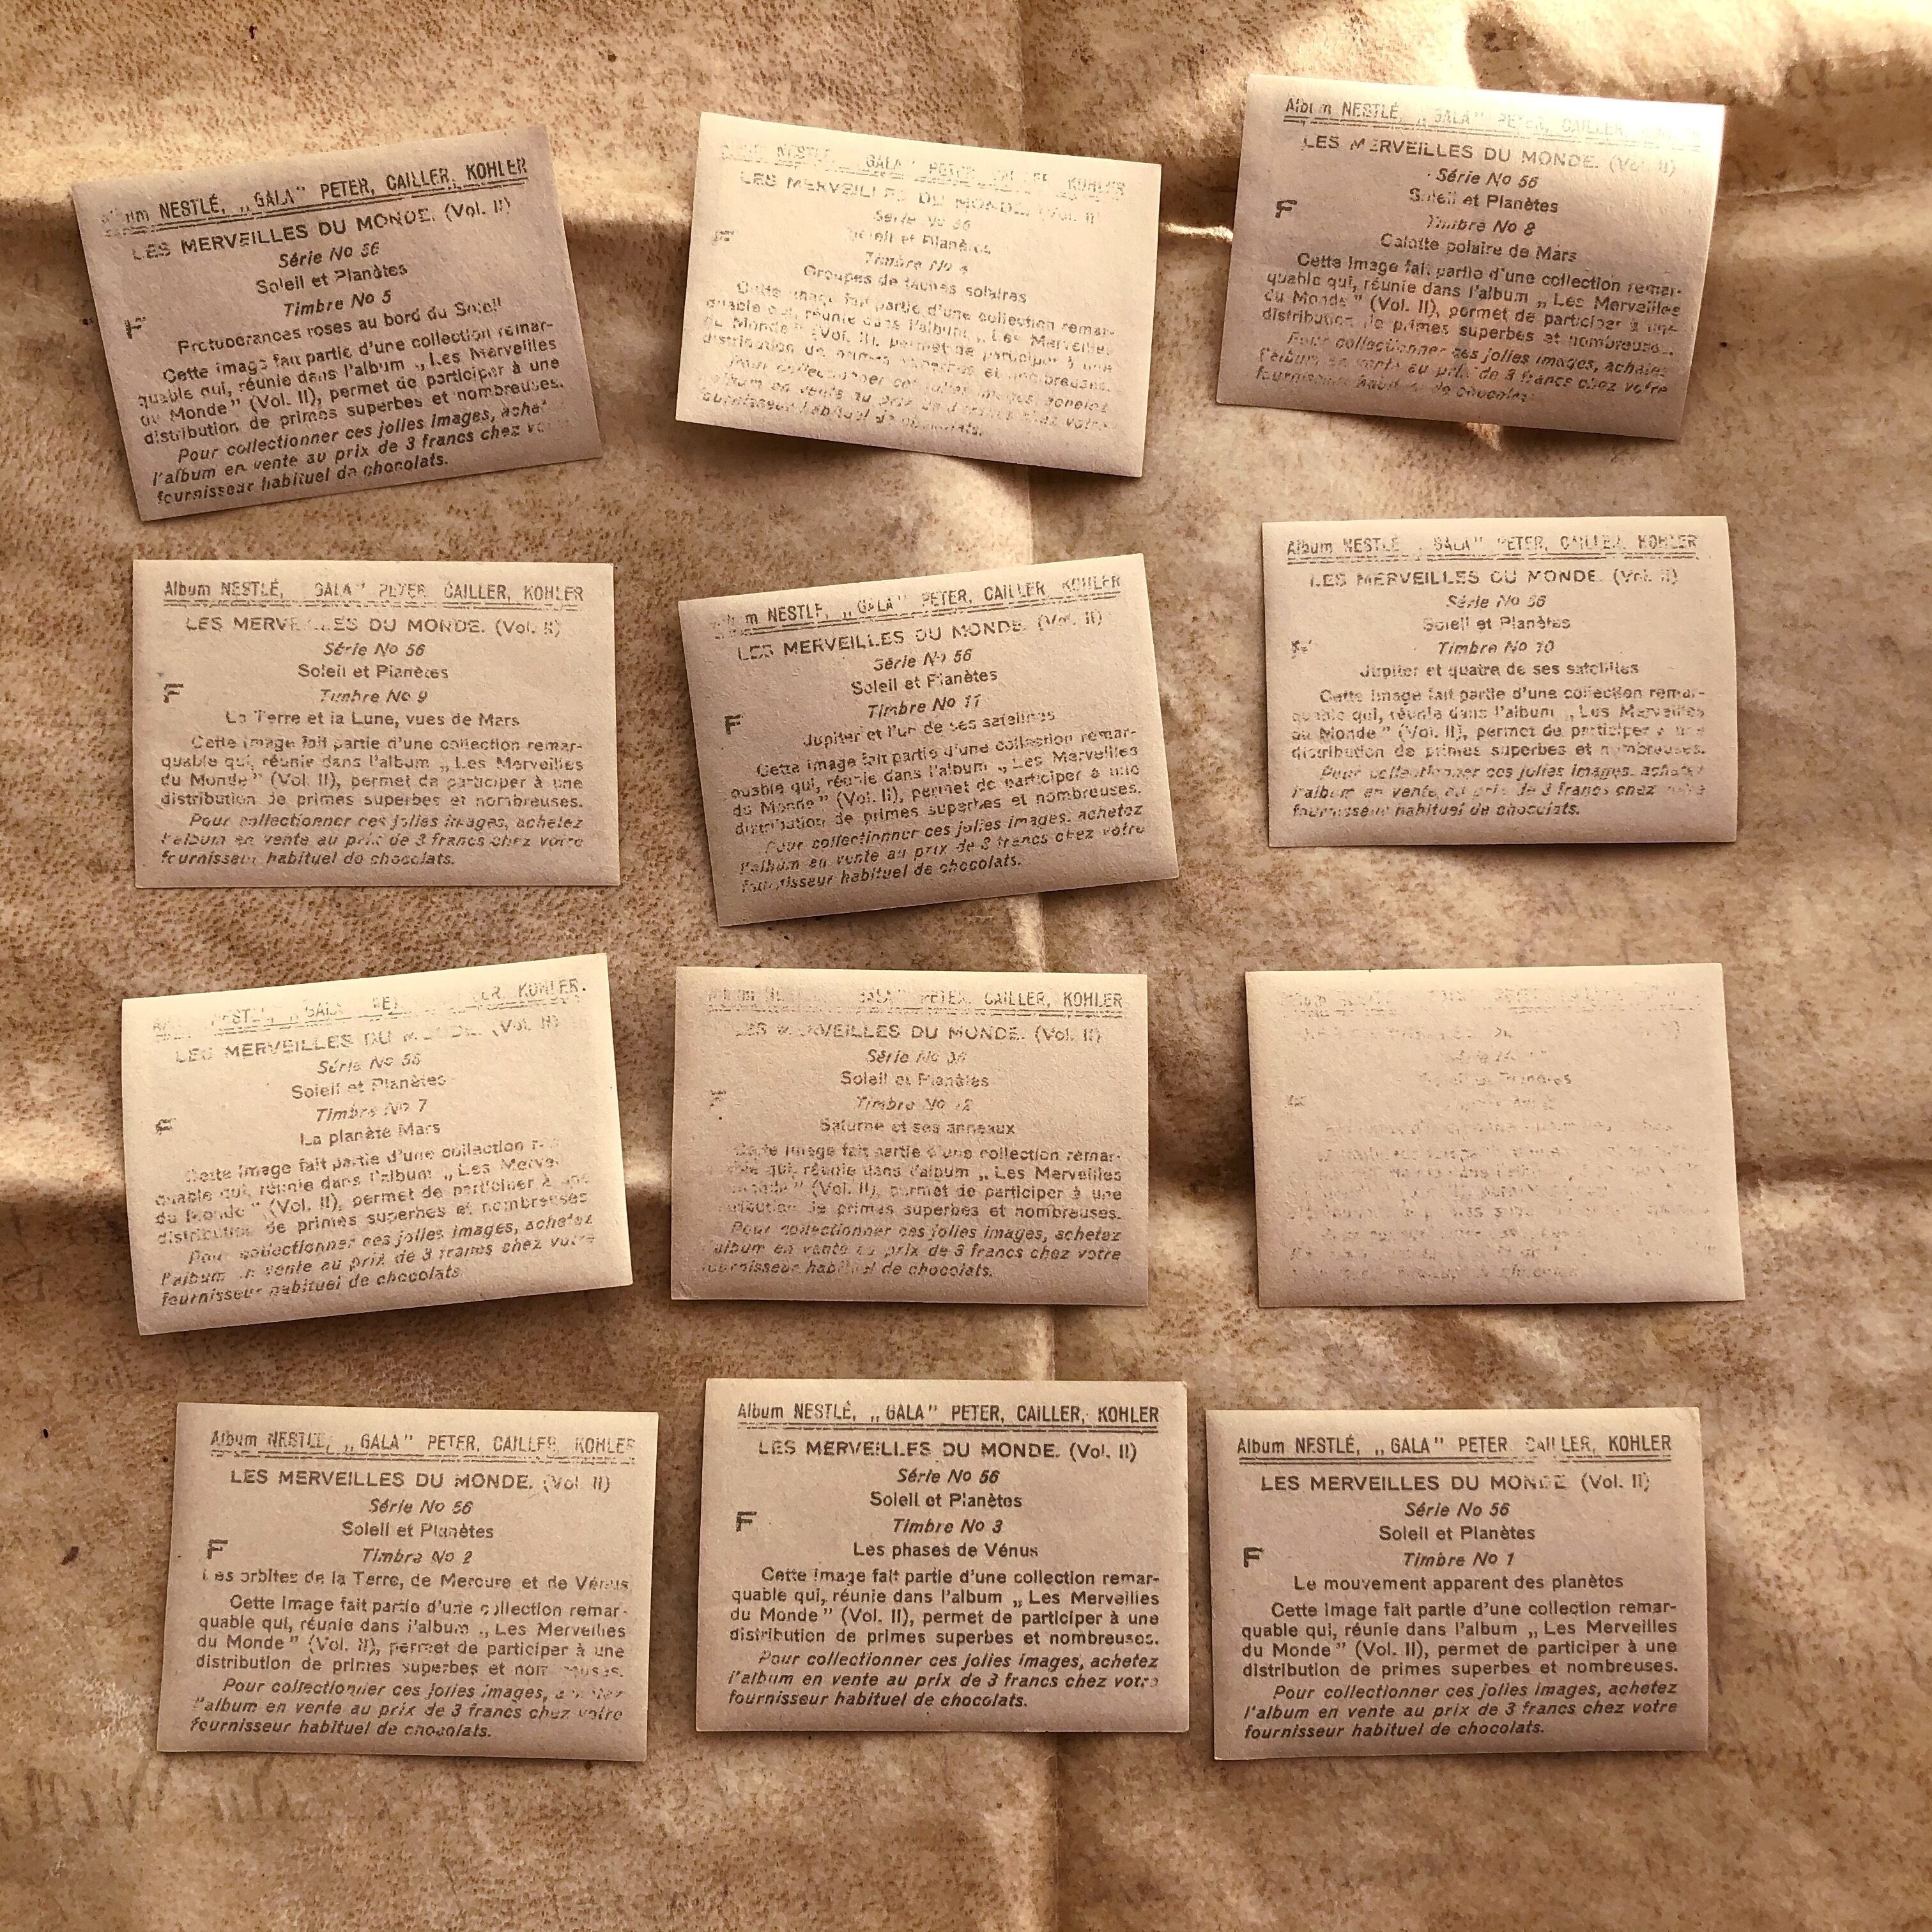 Album NESTLÉ, „GALA" PETER, CAILLER, KOHLER
LES MERVEILLES DU MONDE. (Vol. II)
Série No 56
Soleil et Planètes
Timbre No 5
F
Protubérances roses au bord du Soleil
Cette image fait partie d'une collection remar-
quable qui, réunie dans l'album „Les Merveilles
du Monde" (Vol. II), permet de participer à une
distribution de primes superbes et nombreuses.
Pour collectionner ces jolies images, achetez
l'album en vente au prix de 3 francs chez
fournisseur habituel de chocolats.
NESTLÉ, GALA" PETER, CAILLER, KOHLER
LES MERVEILLES DU MONDE. (Vol. II)
Série No 56
Soleil et Planètes
Timbre No 4
F
Groupes de taches solaires
Cette image fait partie d'une collection remar-
quable qui, réunie dans l'album „Les Merveilles
du Monde" (Vol. II), permet de participer à une
distribution de primes superbes et nombreuses.
Pour collectionner ces jolies images, achetez
l'album en vente au prix de 3 francs chez votre
fournisseur habituel de chocolats.
Album NESTLÉ, „GALA" PETER, CAILLER,
LES MERVEILLES DU MONDE. (Vol. II)
Série No 56
Soleil et Planètes
F
Timbre No 8
Calotte polaire de Mars
Cette image fait partie d'une collection remar-
quable qui, réunie dans l'album „Les Merveilles
du Monde" (Vol. II), permet de participer à une
distribution de primes superbes et nombreuses.
Pour collectionner ces jolies images, achetez
l'album en vente au prix de 3 francs chez votre
fournisseur habituel de chocolats
Album NESTLÉ, GALA" PETER, CAILLER, KOHLER
LES MERVEILLES DU MONDE. (Vol. II)
Série No 56
Soleil et Planètes
F
Timbre No 9
La Terre et la Lune, vues de Mars
Cette image fait partie d'une collection remar-
quable qui, réunie dans l'album „Les Merveilles
du Monde" (Vol. II), permet de participer à une
distribution de primes superbes et nombreuses.
Pour collectionner ces jolies images, achetez
l'album en vente au prix de 3 francs chez votre
fournisseur habituel de chocolats.
Album NESTLÉ, „GALA" PETER, CAILLER, KOHLER
LES MERVEILLES DU MONDE. (Vol. II)
Série No 56
Soleil et Planètes
F
Timbre No 11
Jupiter et l'un de ses satellites
Cette image fait partie d'une collection remar-
quable qui, réunie dans l'album „Les Merveilles
du Monde" (Vol. II), permet de participer à une
distribution de primes superbes et nombreuses.
Pour collectionner ces jolies images, achetez
l'album en vente au prix de 3 francs chez votre
fournisseur habituel de chocolats.
Album NESTLÉ „GALA" PETER, CAILLER, KOHLER
LES MERVEILLES DU MONDE. (Vol. II)
Série No 56
Soleil et Planètes
F
Timbre No 10
Jupiter et quatre de ses satellites
Cette image fait partie d'une collection remar-
quable qui, réunie dans l'album „Les Merveilles
du Monde" (Vol. II), permet de participer à une
distribution de primes superbes et nombreuses.
Pour collectionner ces jolies images, achetez
l'album en vente au prix de 3 francs chez votre
fournisseur habituel de chocolats.
NESTLÉ, „GALA" PETER, CAILLER, KOHLER.
LES MERVEILLES DU MONDE. (Vol. II)
Série No 56
Soleil et Planètes
F
Timbre No 7
La planète Mars
Cette image fait partie d'une collection
quable qui, réunie dans l'album „Les Merveilles
du Monde" (Vol. II), permet de participer à une
distribution de primes superbes et nombreuses
Pour collectionner ces jolies images, achetez
l'album en vente au prix de 3 francs chez votre
fournisseur habituel de chocolats
Album NESTLÉ GALA" PETER, CAILLER, KOHLER
LES MERVEILLES DU MONDE. (Vol. II)
Série No 56
Soleil et Planètes
F
Timbre No 12
Saturne et ses anneaux
Cette image fait partie d'une collection remar-
quable qui, réunie dans l'album „Les Merveilles
Monde" (Vol. II), permet de participer à une
distribution de primes superbes et nombreuses.
Pour collectionner ces jolies images, achetez
l'album en vente au prix de 3 francs chez votre
fournisseur habituel de chocolats.
Soleil et Planètes
Album NESTLÉ, „GALA" PETER, CAILLER, KOHLER
LES MERVEILLES DU MONDE. (Vol. II)
Série No 56
Soleil et Planètes
F
Timbre No 2
Les orbites de la Terre, de Mercure et de Vénus
Cette image fait partie d'une collection remar-
quable qui, réunie dans l'album „Les Merveilles
du Monde" (Vol. II), permet de participer à une
distribution de primes superbes et nombreuses.
Pour collectionner ces jolies images, achetez
l'album en vente au prix de 3 francs chez votre
fournisseur habituel de chocolats.
Album NESTLÉ, „GALA" PETER, CAILLER, KOHLER
LES MERVEILLES DU MONDE. (Vol. II)
Série No 56
Soleil et Planètes
F
Timbre No 3
Les phases de Vénus
Cette image fait partie d'une collection remar-
quable qui, réunie dans l'album „Les Merveilles
du Monde" (Vol. II), permet de participer à une
distribution de primes superbes et nombreuses.
Pour collectionner ces jolies images, achetez
l'album en vente au prix de 3 francs chez votre
fournisseur habituel de chocolats.
Album NESTLÉ, „GALA" PETER CAILLER, KOHLER
LES MERVEILLES DU MONDE (Vol. II)
Série No 56
Soleil et Planètes
F
Timbre No 1
Le mouvement apparent des planètes
Cette image fait partie d'une collection remar-
quable qui, réunie dans l'album „Les Merveilles
du Monde" (Vol. II), permet de participer à une
distribution de primes superbes et nombreuses.
Pour collectionner ces jolies images, achetez
l'album en vente au prix de 3 francs chez votre
fournisseur habituel de chocolats.